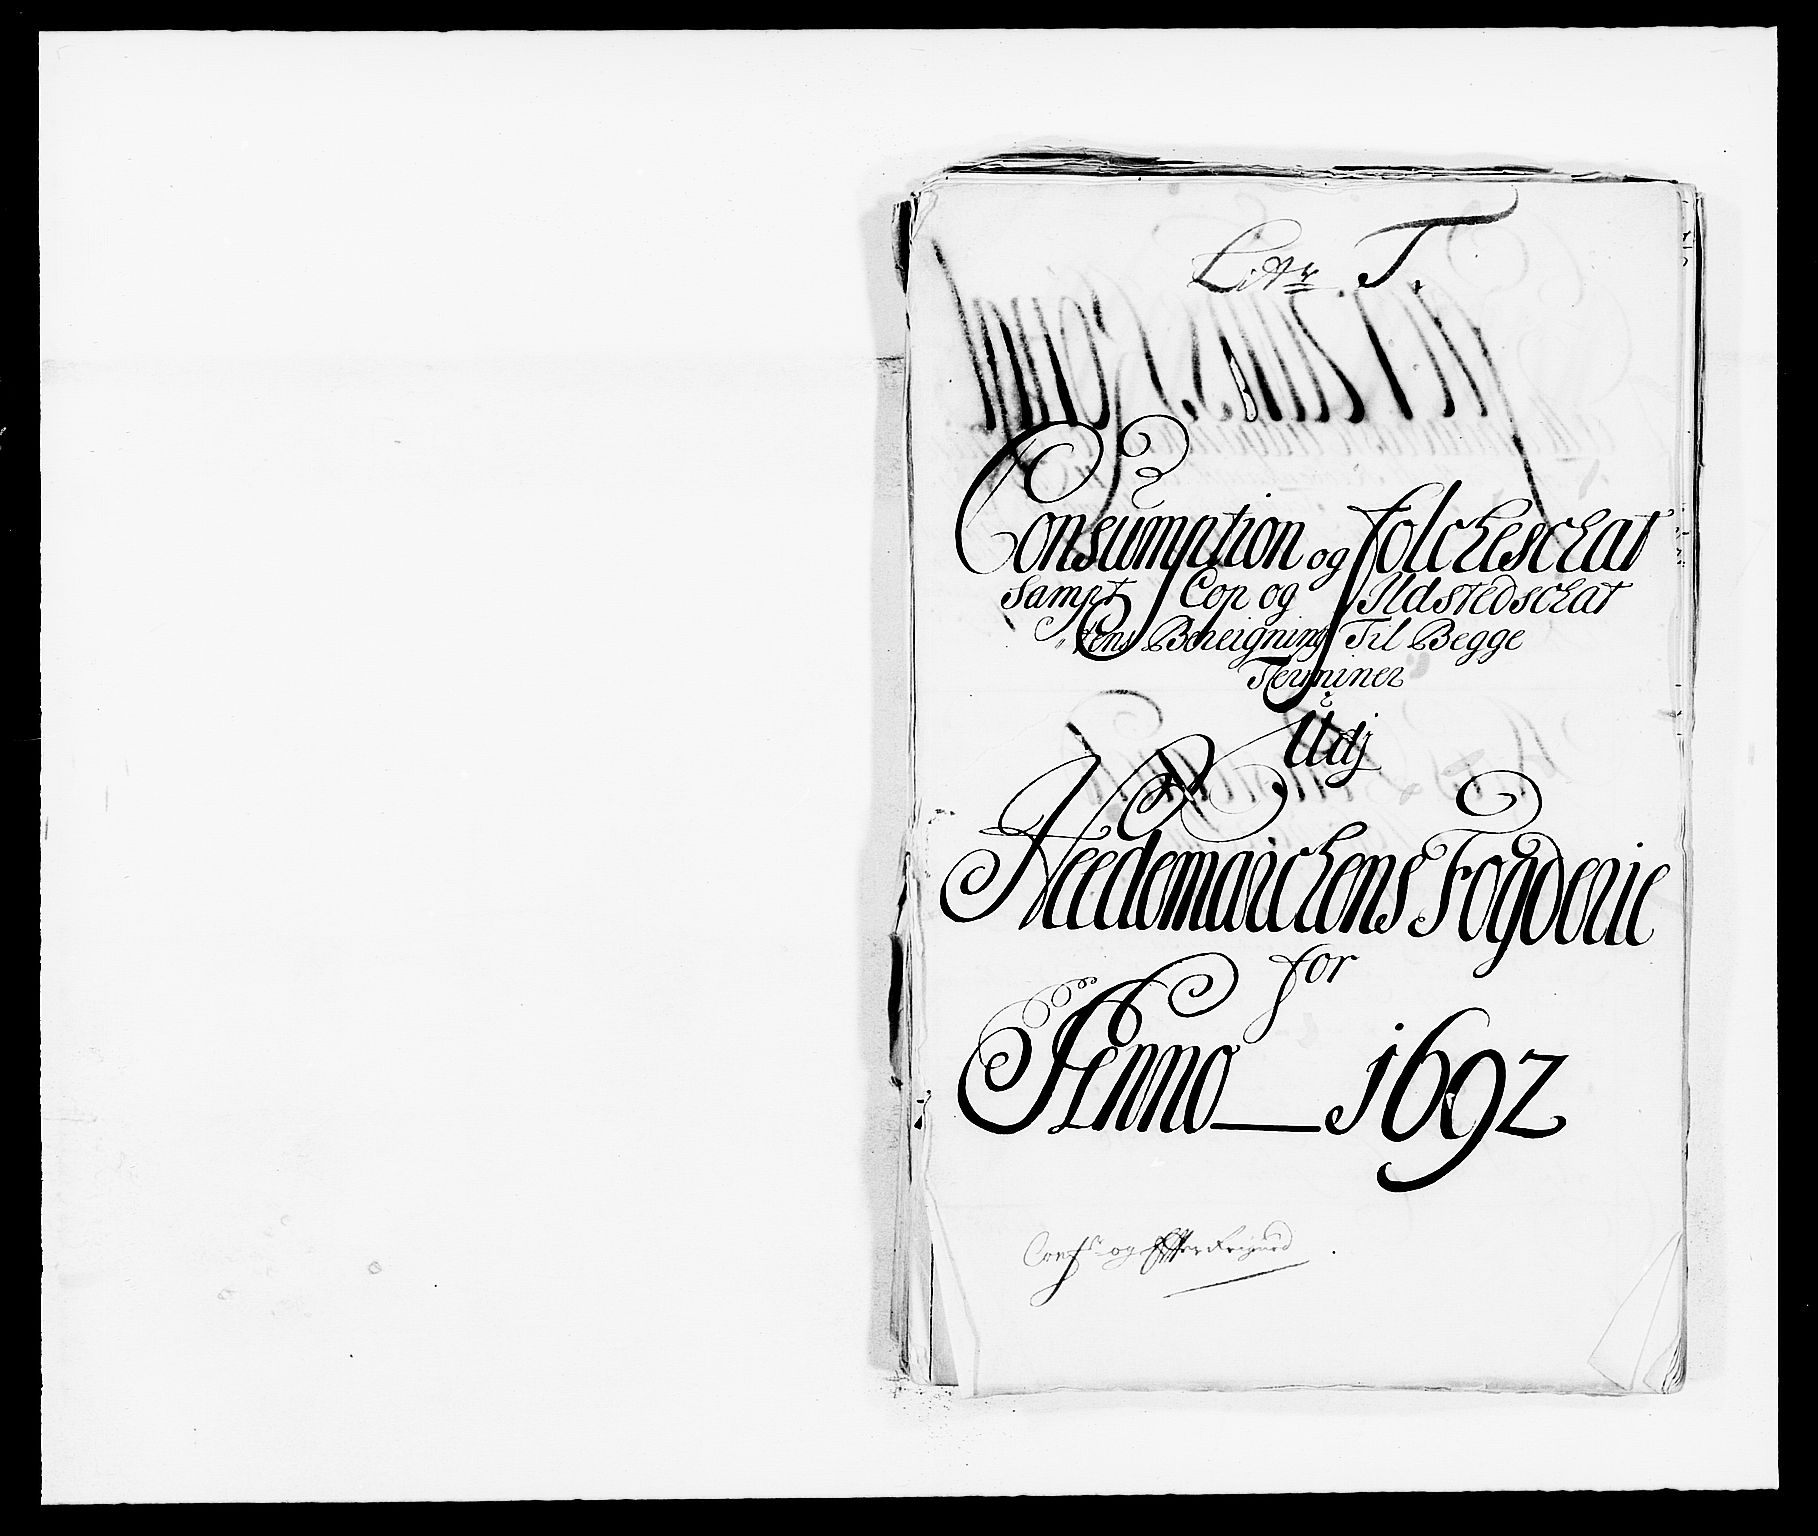 Littr T.
Consumption og Folckeschat
Sampt Cop og Ildstedschat
tens Bereigning Til Begge
Terminer
Udj
Heedemarckens Fogderie
for
Anno 1692
Conf: og Effterreigned